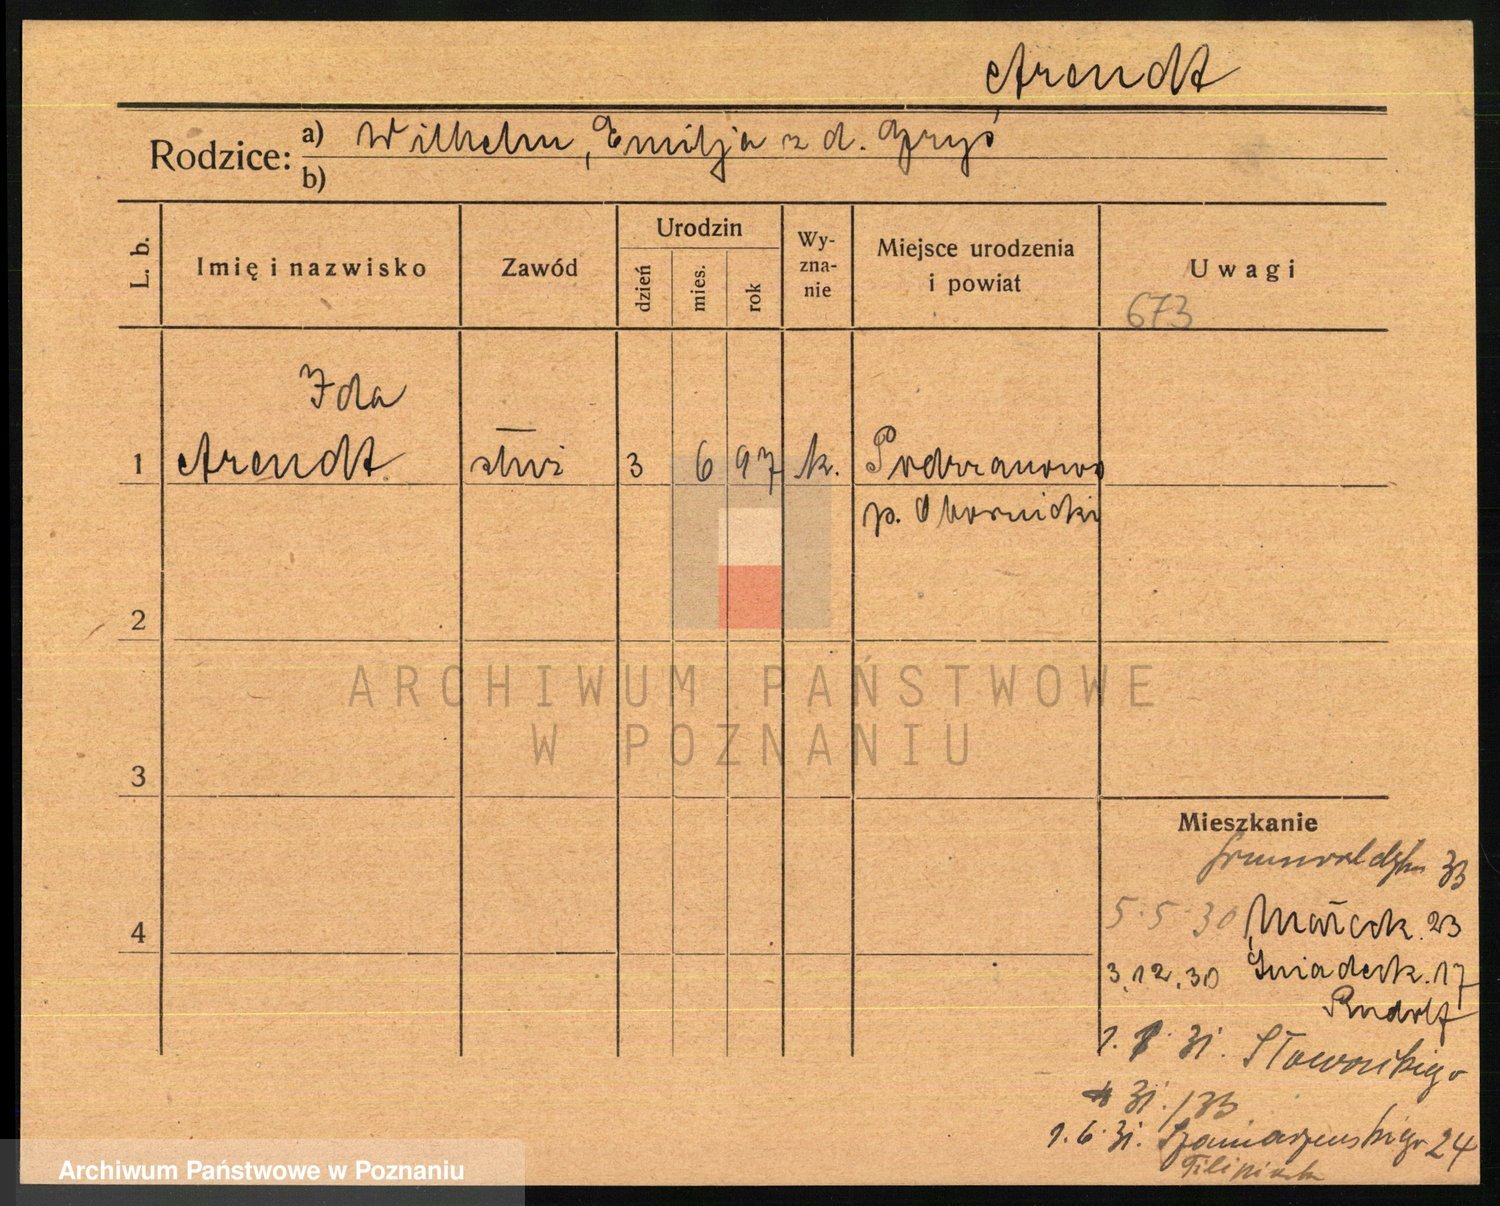 Arendt
Rodzice: a) Wilhelm, Emilja z d. Gryś
b)
L. b.
Imię i nazwisko
Zawód
Urodzin
dzień
mies.
rok
Wy-
zna-
nie
Miejsce urodzenia
i powiat
Uwagi
673
Ida
1 Arendt służ 3 6 97 k. Podrzanowo
p. Obornicki
2
3
4
ARCHIWUM PAŃSTWOWE
W POZNANIU
Mieszkanie
33
5.5.30 Małeck. 23
3.12.30 Śniadeck. 17
Rudolf
1. 31. Słowackiego
31./33
1.6.31. 24
Filipiak
Archiwum Państwowe w Poznaniu